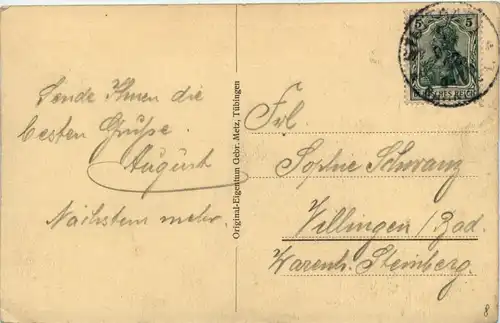 Sende Ihnen die
besten Grüße.
August
Nächstens mehr.
Original-Eigentum Gebr. Metz, Tübingen
5 5
DEUTSCHES REICH
Frl.
Sophie Schwanz
Villingen/Bad.
Warenh. Steinberg.
8